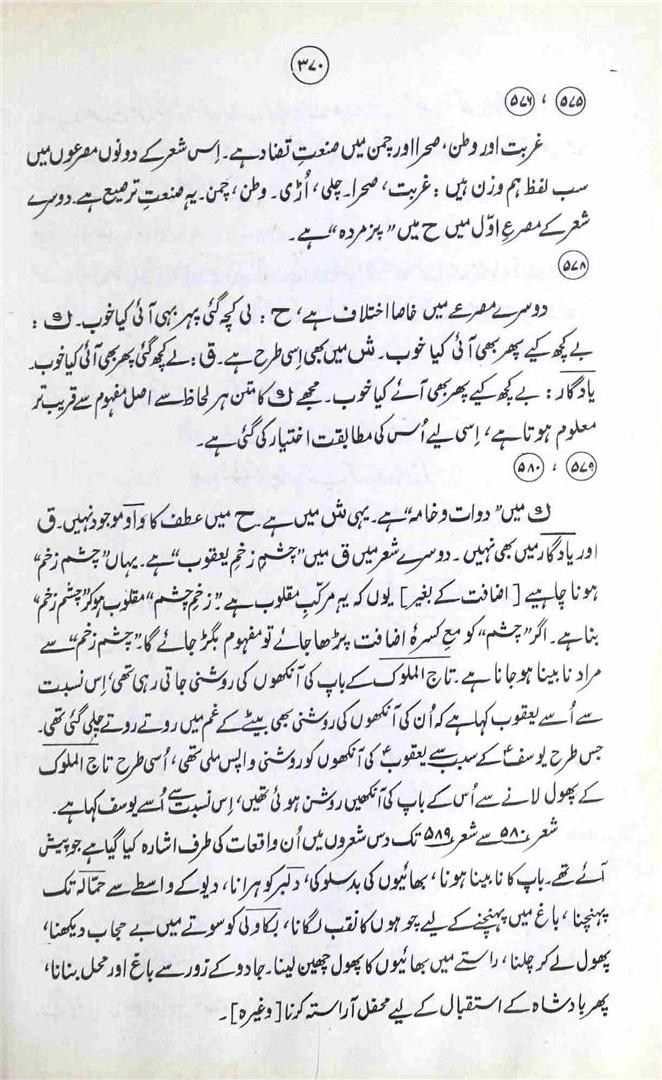 ۳۷۰
۵۷۵ ، ۵۷۶
غربت اور وطن، صحرا اور چمن میں صنعتِ تضاد ہے۔ اِس شعر کے دونوں مصرعوں میں
سب لفظ ہم وزن ہیں : غربت، صحرا۔ چلی، اُڑی۔ وطن، چمن۔ یہ صنعتِ ترصیع ہے۔ دوسرے
شعر کے مصرعِ اوّل میں ح میں ”پزمردہ“ ہے۔
۵۷۸
دوسرے مصرعے میں خاصا اختلاف ہے، ح : لی کچھ گئی پہر بہی آئی کیا خوب۔ ك :
بے کچھ کیے پھر بھی آئی کیا خوب۔ ش میں بھی اِسی طرح ہے۔ ق : لے کچھ گئی پھر بھی آئی کیا خوب۔
یادگار : بے کچھ کیے پھر بھی آئے کیا خوب۔ مجھے ك کا متن ہر لحاظ سے اصل مفہوم سے قریب تر
معلوم ہوتا ہے، اِسی لیے اُس کی مطابقت اختیار کی گئی ہے۔
۵۷۹ ، ۵۸۰
ك میں ”دوات و خامہ“ ہے۔ یہی ش میں ہے۔ ح میں عطف کا واو موجود نہیں۔ ق
اور یادگار میں بھی نہیں۔ دوسرے شعر میں ق میں ”چشمِ زخمِ یعقوب“ ہے۔ یہاں ”چشم زخم“
ہونا چاہیے [اضافت کے بغیر] یوں کہ یہ مرکّبِ مقلوب ہے۔ ”زخمِ چشم“ مقلوب ہو کر ”چشم زخم“
بنا ہے۔ اگر ”چشم“ کو معِ کسرۂ اضافت پڑھا جائے تو مفہوم بگڑ جائے گا۔ ”چشم زخم“ سے
مراد نابینا ہو جانا ہے۔ تاج الملوک کے باپ کی آنکھوں کی روشنی جاتی رہی تھی، اِس نسبت
سے اُسے یعقوب کہا ہے کہ اُن کی آنکھوں کی روشنی بھی بیٹے کے غم میں روتے روتے چلی گئی تھی۔
جس طرح یوسفؑ کے سبب سے یعقوبؑ کی آنکھوں کو روشنی واپس ملی تھی، اُسی طرح تاج الملوک
کے پھول لانے سے اُس کے باپ کی آنکھیں روشن ہوئی تھیں، اِس نسبت سے اُسے یوسف کہا ہے۔
شعر ۵۸۰ سے شعر ۵۸۹ تک دس شعروں میں اُن واقعات کی طرف اشارہ کیا گیا ہے جو پیش
آئے تھے۔ باپ کا نابینا ہونا، بھائیوں کی بدسلوکی، دلبر کو ہرانا، دیو کے واسطے سے حمّالہ تک
پہنچنا، باغ میں پہنچنے کے لیے چوہوں کا نقب لگانا، بکاولی کو سوتے میں بے حجاب دیکھنا،
پھول لے کر چلنا، راستے میں بھائیوں کا پھول چھین لینا۔ جادو کے زور سے باغ اور محل بنانا،
پھر بادشاہ کے استقبال کے لیے محفل آراستہ کرنا [وغیرہ]۔